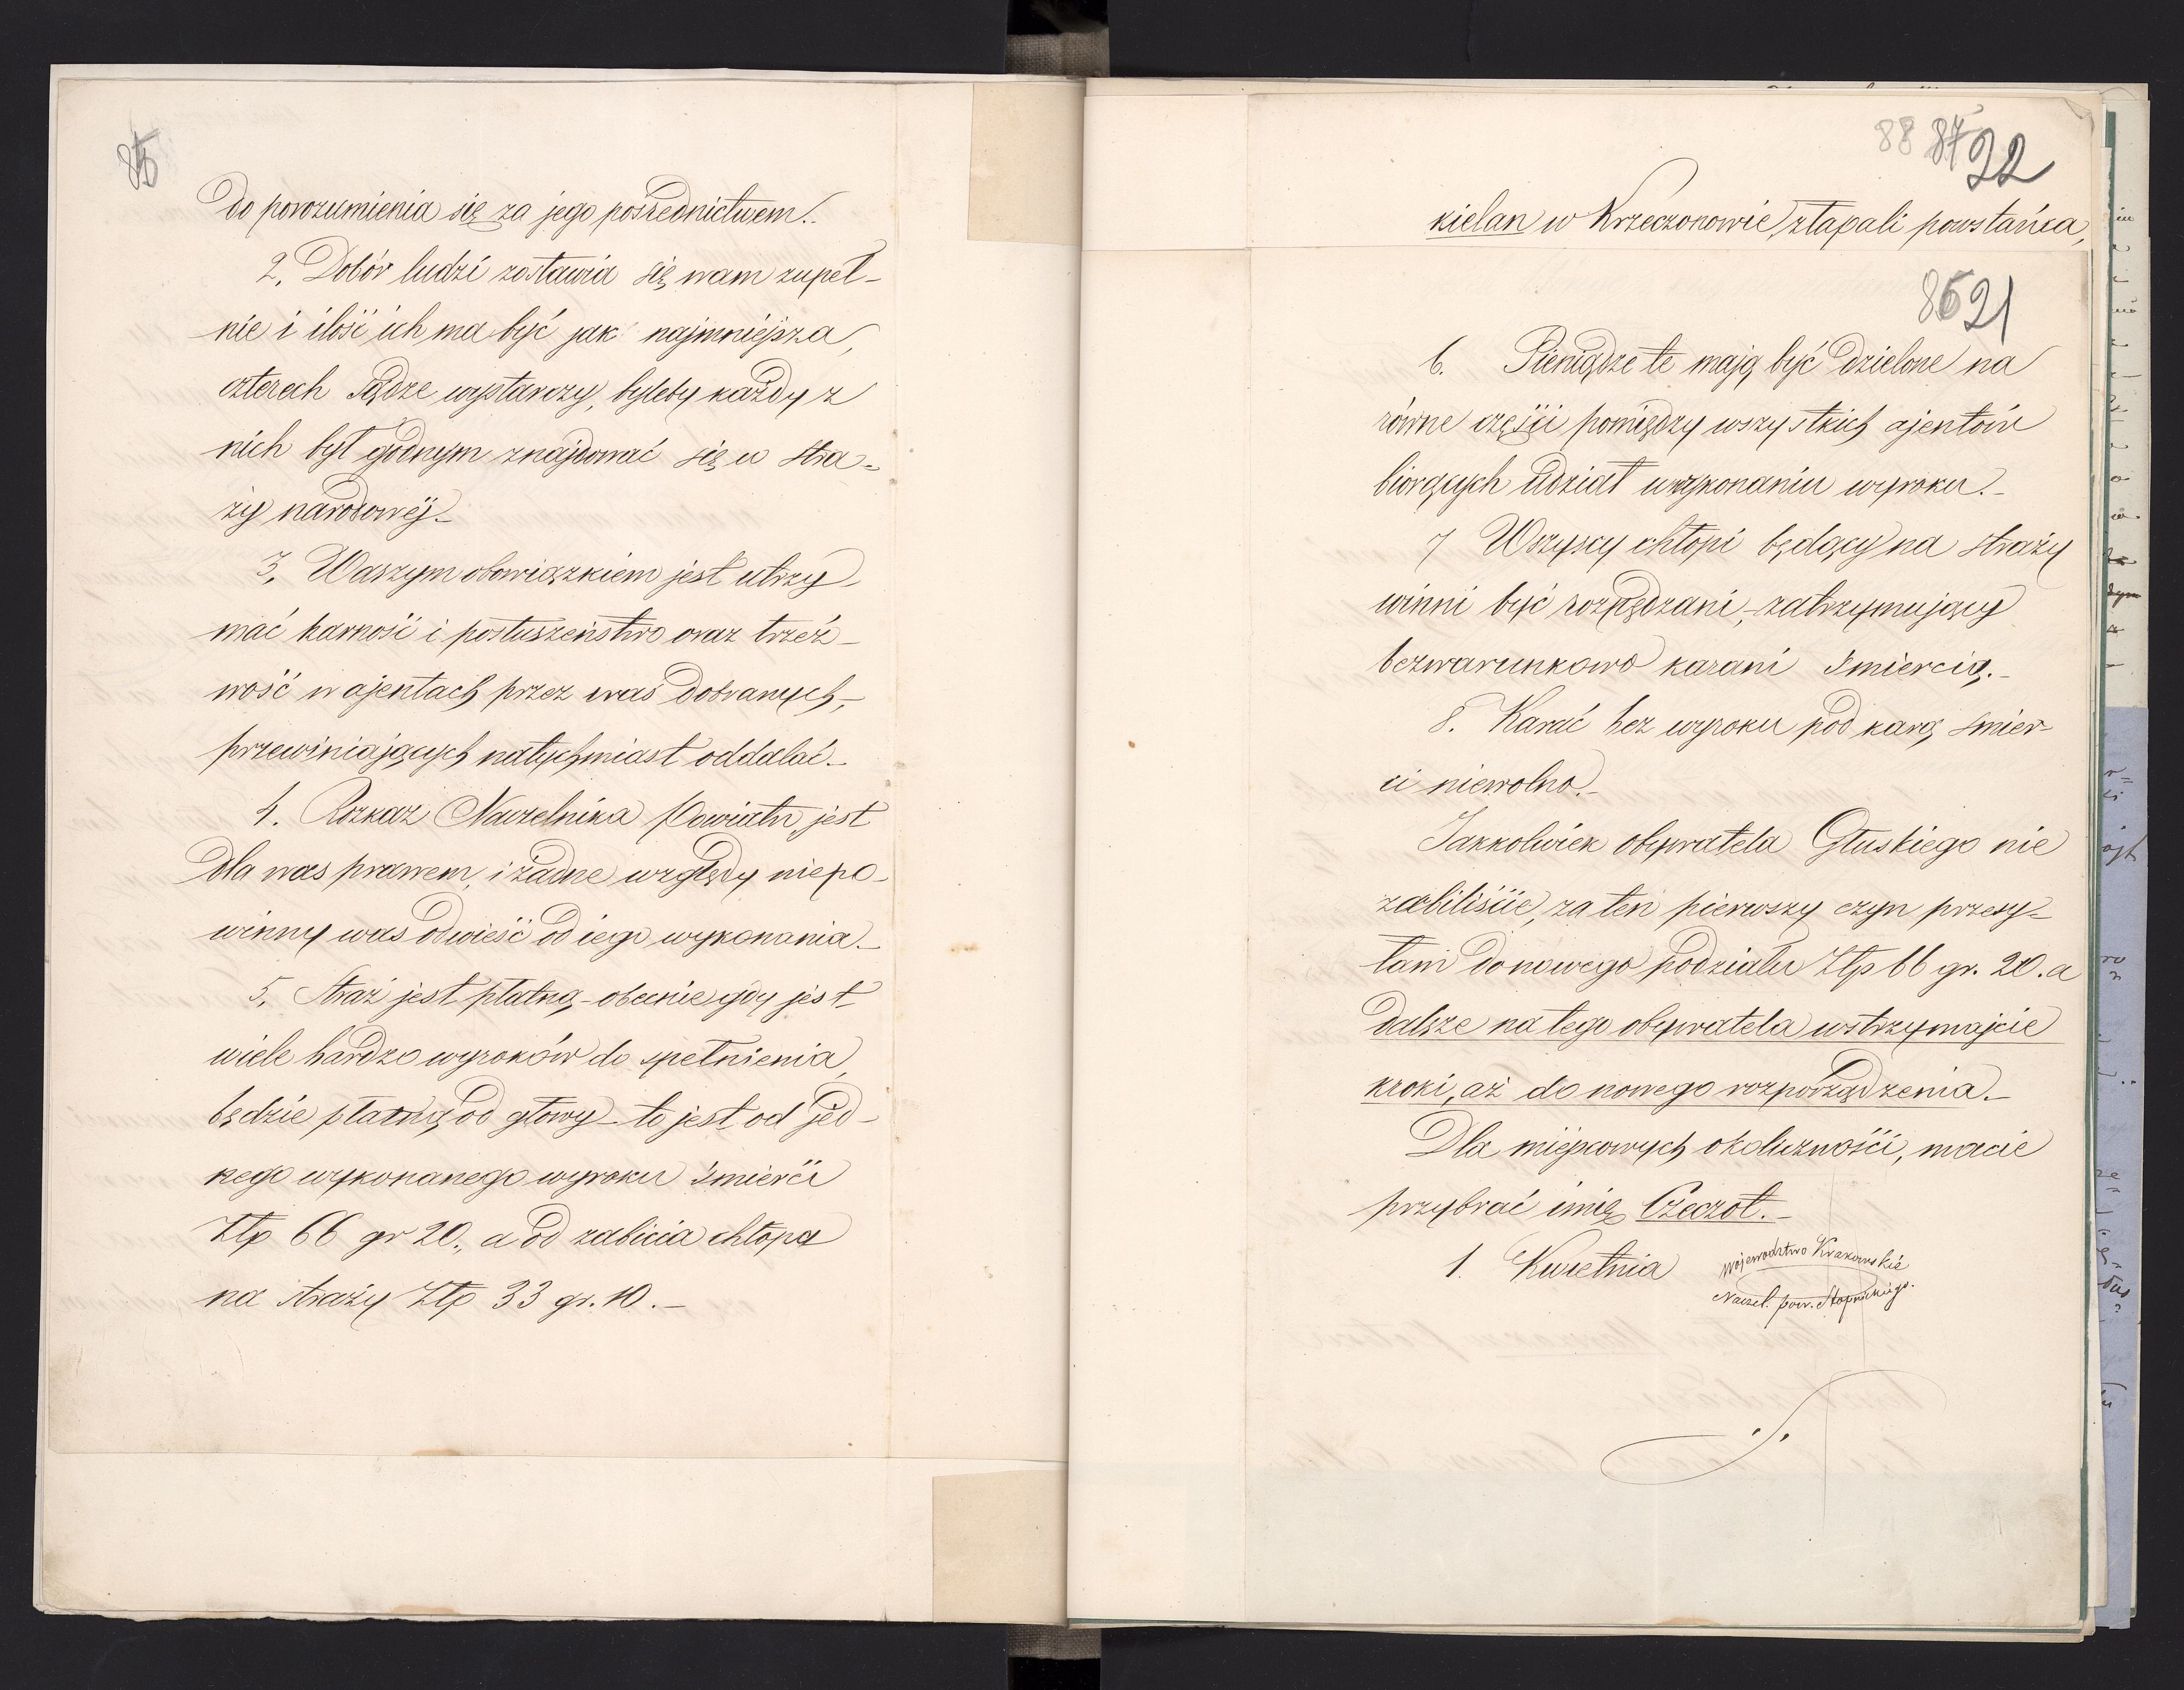 do porozumienia się za jego pośrednictwem.
2. Dobór ludzi zostawia się wam zupeł-
nie i ilość ich ma być jak najmniejsza,
czterech sądze wystarczy, byleby każdy z
nich był godnym znajdować się w stra-
ży narodowéj.-
3. Waszym obowiązkiem jest utrzy
mać karność i posłuszeństwo oraz trzeź-
wość w ajentach przez was dobranych,-
przewiniających natychmiast oddalać.-
4. Rozkaz Naczelnika Powiatu jest
dla was prawem, i żadne względy niepo-
winny was odwieść od iego wykonania.-
5. Straż jest płatną - obecnie gdy jest
wiele bardzo wyroków do spełnienia,
będzie płatną od głowy - to jest od jed-
nego wykonanego wyroku śmierci
Złp 66 gr 20., a od zabicia chłopa
na straży Złp 33 gr. 10.-
88 87 92
kielan w Krzeczonowie złapali powstańca,
86 91
6. Pieniądze te mają być dzielone na
równe części pomiędzy wszystkich ajentów
biorących udział w wykonaniu wyroku.-
7 Wszyscy chłopi będący na straży
winni być rozpędzani, - zatrzymujący
bezwarunkowo karani śmiercią.-
8. Karać bez wyroku pod karą śmier-
ci niewolno.-
Jakkolwiek obywatela Głuskiego nie
zabiliście, za ten pierwszy czyn przesy-
łam do nowego podziału Złp 66 gr. 20. a
dalsze na tego obywatela wstrzymajcie
kroki, aż do nowego rozporządzenia.-
Dla miéjscowych okoliczności, macie
przybrać imię Czeczot.-
1. Kwietnia
Województwo Krakowskie
Naczel. pow. Stopnickiego.